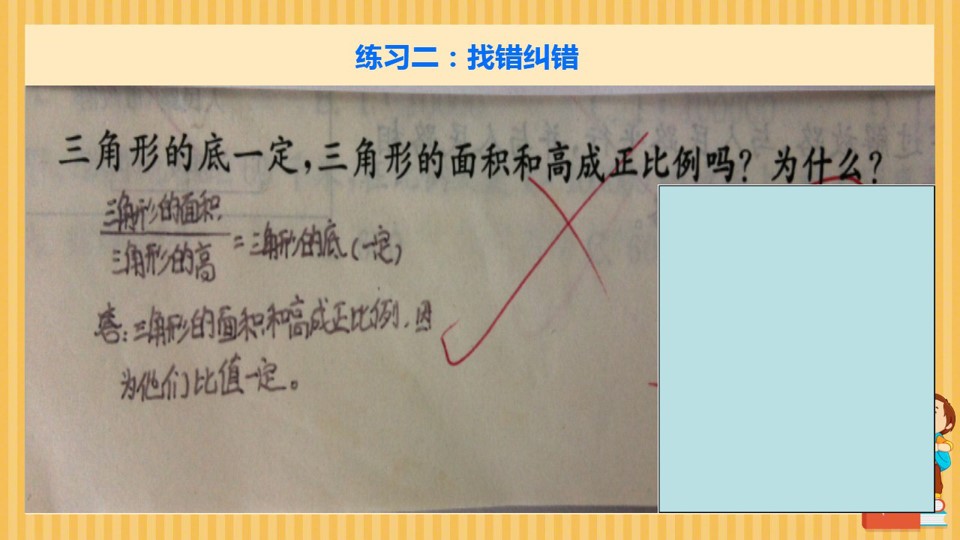 练习二：找错纠错
三角形的底一定，三角形的面积和高成正比例吗？为什么？
三角形的面积
三角形的高
=三角形的底（一定）
答：三角形的面积和高成正比例，因
为他们比值一定。